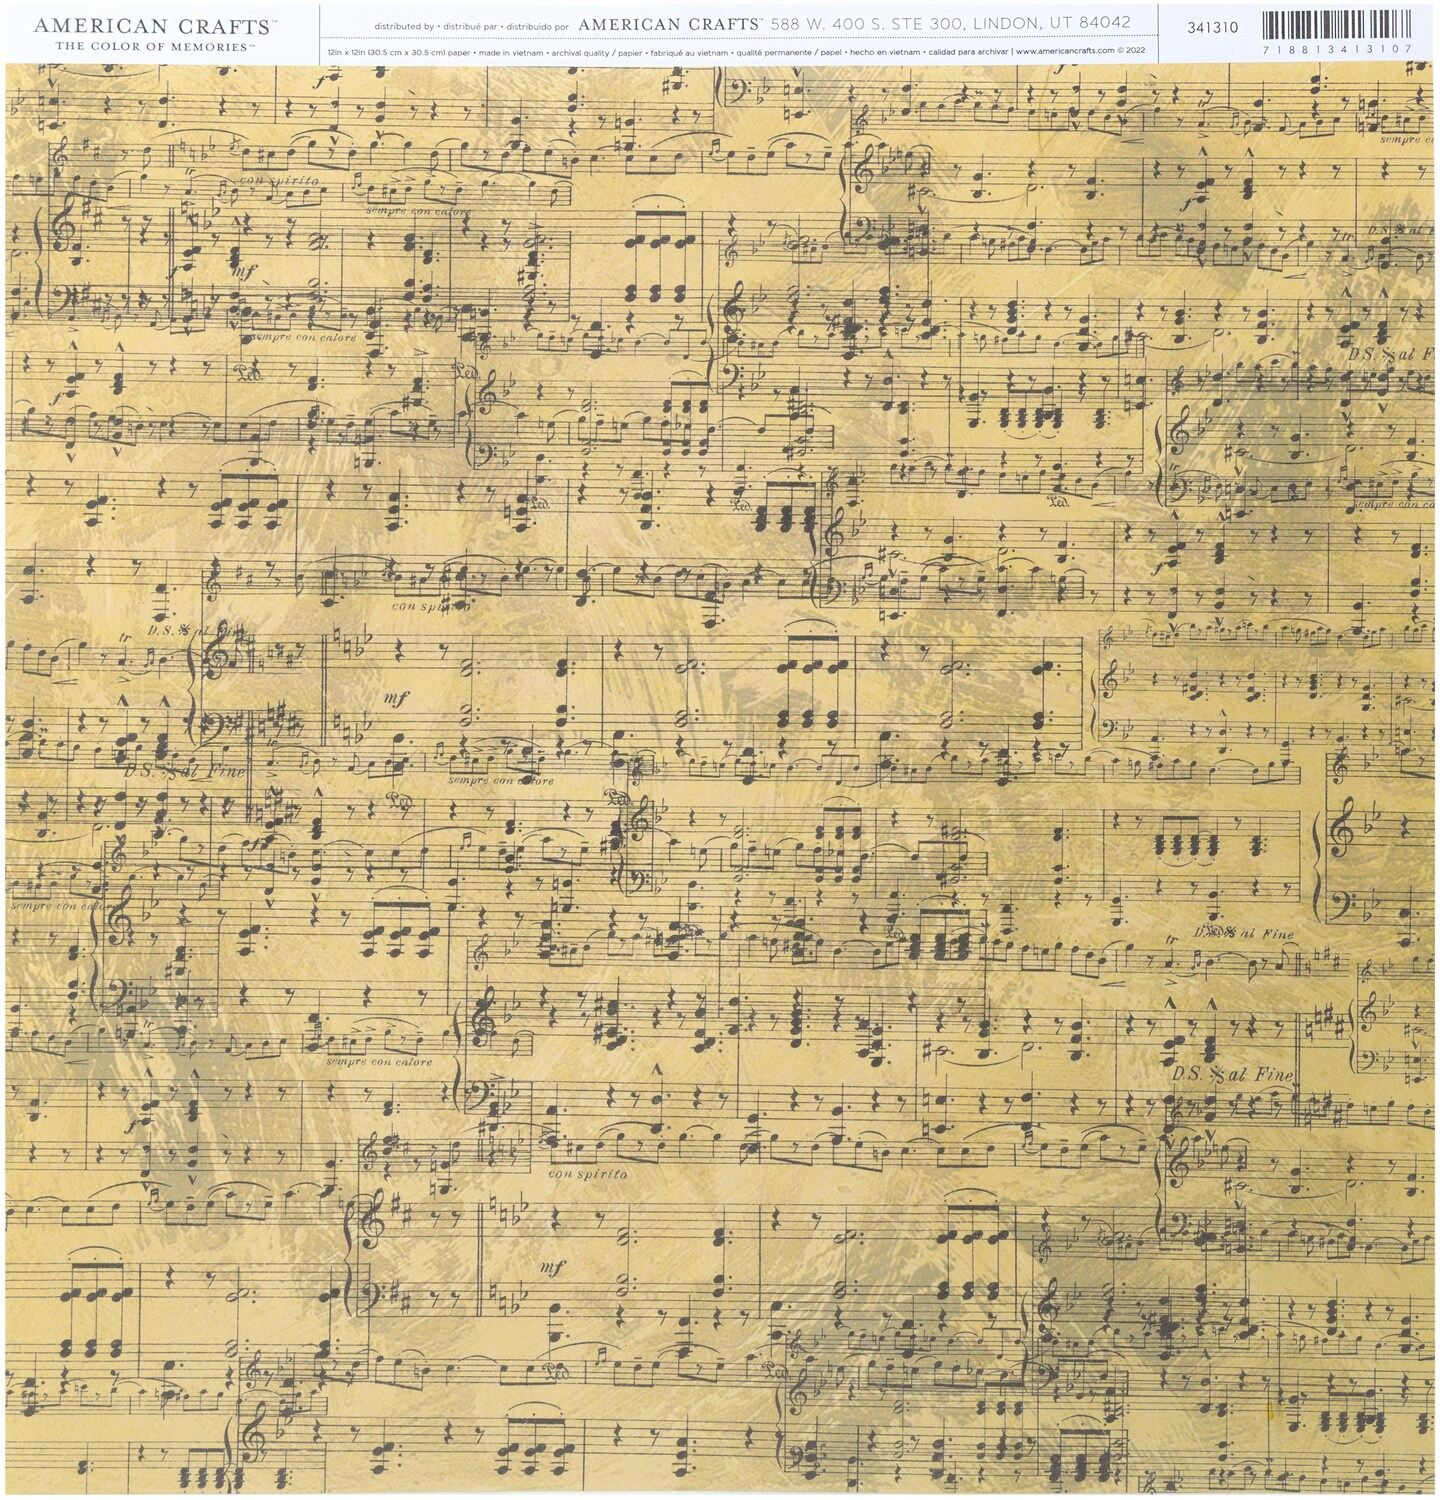 AMERICAN CRAFTS™
THE COLOR OF MEMORIES™
distributed by • distribué par • distribuido por AMERICAN CRAFTS™ 588 W. 400 S. STE 300, LINDON, UT 84042
12in x 12in (30.5 cm x 30.5 cm) paper • made in vietnam • archival quality / papier • fabriqué au vietnam • qualité permanente / papel • hecho en vietnam • calidad para archivar | www.americancrafts.com © 2022
341310
7 18813 41310 7
sempre co
con spirito
sempre con calore
D.S. al F
mf
sempre con calore
D.S. al F
Ped.
Ped.
f
Ped.
Ped.
Ped.
sempre con ca
f
con spirito
tr
D.S. al Fine
mf
sempre con calore
D.S. al Fine
Ped.
Ped.
sempre con calore
tr
D.S. al Fine
sempre con calore
D.S. al Fine
f
con spirito
mf
Ped.
Ped.